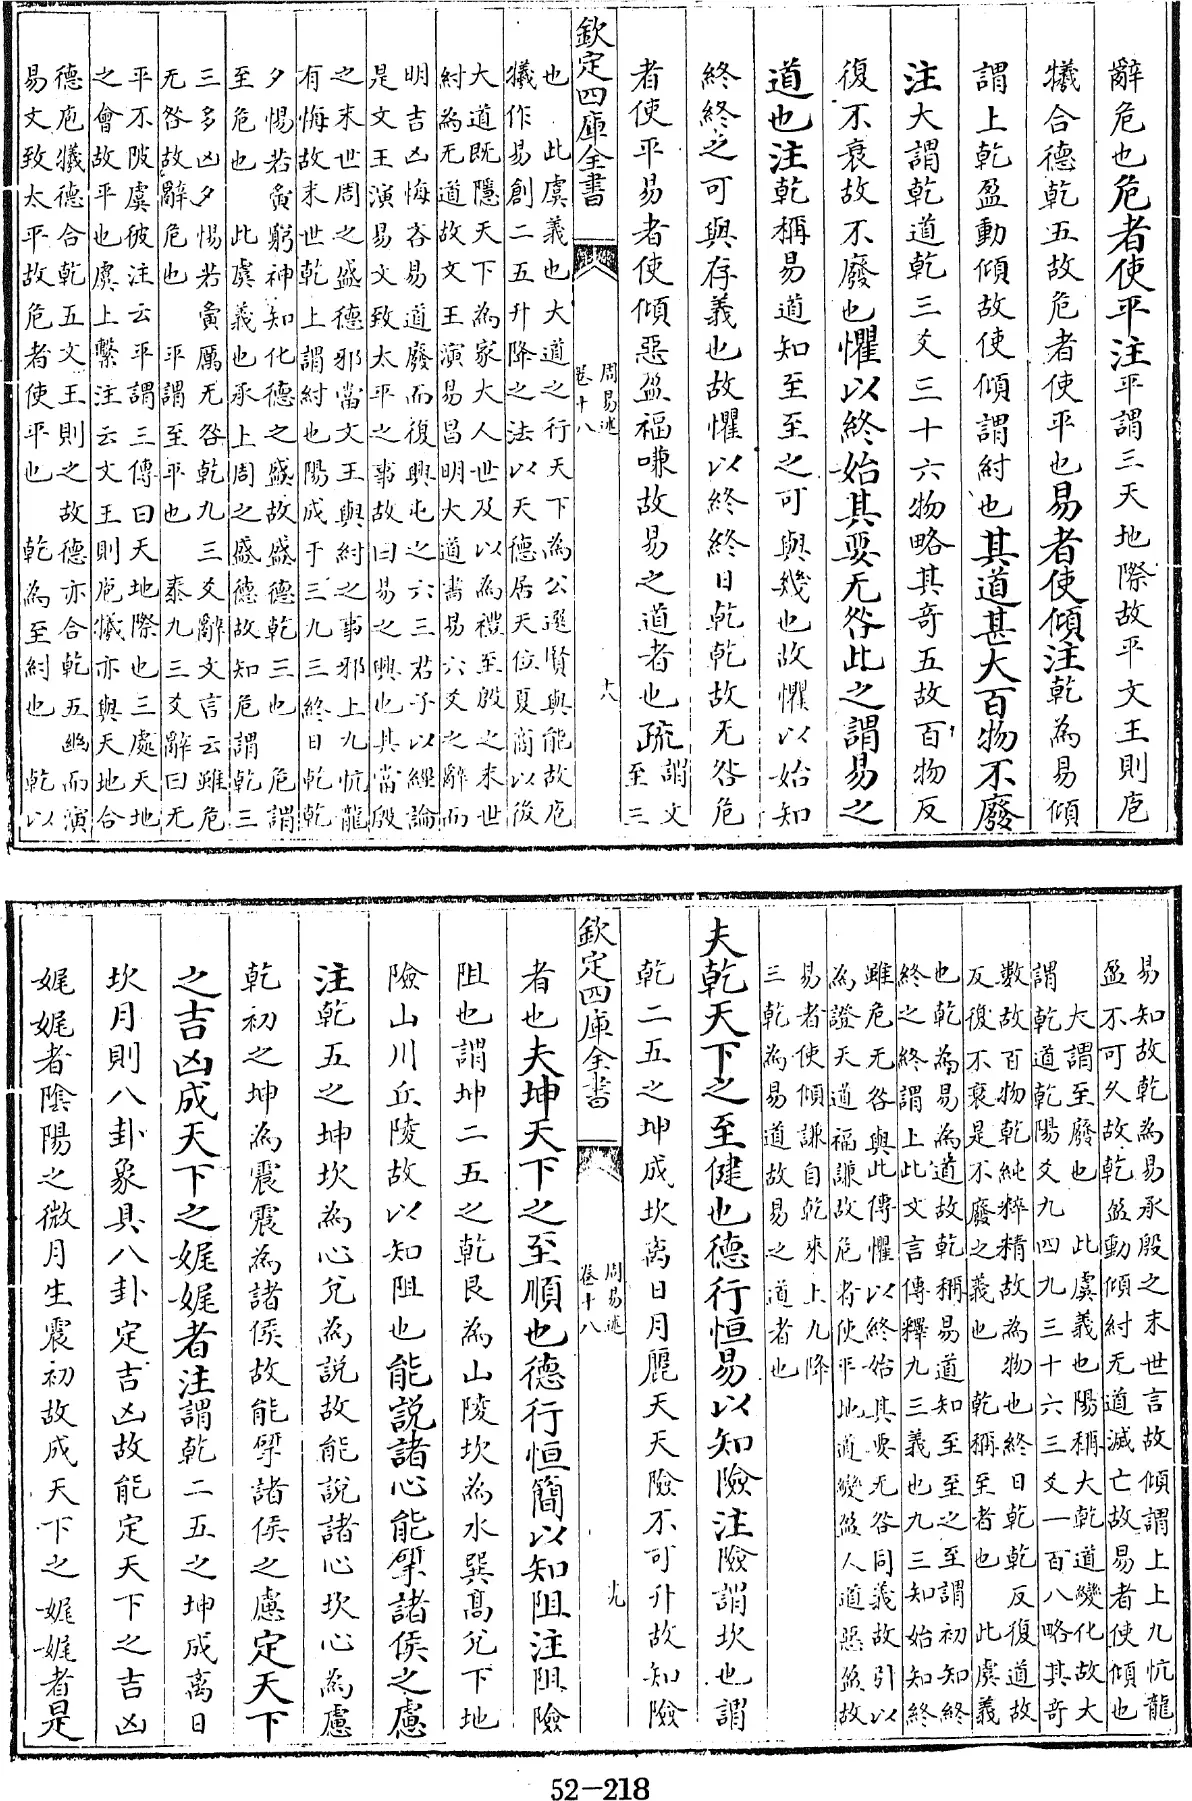 辭危也危者使平注平謂三天地際故平文王則庖
犧合德乾五故危者使平也易者使傾注乾為易傾
謂上乾盈動傾故使傾謂紂也其道甚大百物不廢
注大謂乾道乾三爻三十六物略其奇五故百物反
復不衰故不廢也懼以終始其要无咎此之謂易之
道也注乾稱易道知至至之可與幾也故懼以始知
終終之可與存義也故懼以終終日乾乾故无咎危
者使平易者使傾惡盈福嗛故易之道者也疏謂文
至三
欽定四庫全書
周易述
卷十八
十八
也 此虞義也大道之行天下為公選賢與能故庖
犧作易創二五升降之法以天德居天位夏商以後
大道既隱天下為家大人世及以為禮至殷之末世
紂為无道故文王演易昌明大道書易六爻之辭而
明吉凶悔吝易道廢而復興屯之六三君子以經論
是文王演易文致太平之事故曰易之興也其當殷
之末世周之盛德邪當文王與紂之事邪上九忼龍
有悔故末世乾上謂紂也陽成于三九三終日乾乾
夕惕若夤窮神知化德之盛故盛德乾三也 危謂
至危也 此虞義也承上周之盛德故知危謂乾三
三多凶夕惕若夤厲无咎乾九三爻辭文言云雖危
无咎故辭危也 平謂至平也 泰九三爻辭曰无
平不陂虞彼注云平謂三傳曰天地際也三處天地
之會故平也虞上繫注云文王則庖犧亦與天地合
德庖犧德合乾五文王則之故德亦合乾五幽而演
易文致太平故危者使平也 乾為至紂也 乾以
易知故乾為易承殷之末世言故傾謂上上九忼龍
盈不可久故乾盈動傾紂无道滅亡故易者使傾也
大謂至廢也 此虞義也陽稱大乾道變化故大
謂乾道乾陽爻九四九三十六三爻一百八略其奇
數故百物乾純粹精故為物也終日乾乾反復道故
反復不衰是不廢之義也 乾稱至者也 此虞義
也乾為易為道故乾稱易道知至至之至謂初知終
終之終謂上此文言傳釋九三義也九三知始知終
雖危无咎與此傳懼以終始其要无咎同義故引以
為證天道福謙故危者使平地道變盈人道惡盈故
易者使傾謙自乾來上九降
三乾為易道故易之道者也
夫乾天下之至健也德行恒易以知險注險謂坎也謂
乾二五之坤成坎离日月麗天天險不可升故知險
欽定四庫全書
周易述
卷十八
十九
者也夫坤天下之至順也德行恒簡以知阻注阻險
阻也謂坤二五之乾艮為山陵坎為水巽高兌下地
險山川丘陵故以知阻也能說諸心能揅諸侯之慮
注乾五之坤坎為心兌為說故能說諸心坎心為慮
乾初之坤為震震為諸侯故能揅諸侯之慮定天下
之吉凶成天下之娓娓者注謂乾二五之坤成离日
坎月則八卦象具八卦定吉凶故能定天下之吉凶
娓娓者陰陽之微月生震初故成天下之娓娓者是
52-218